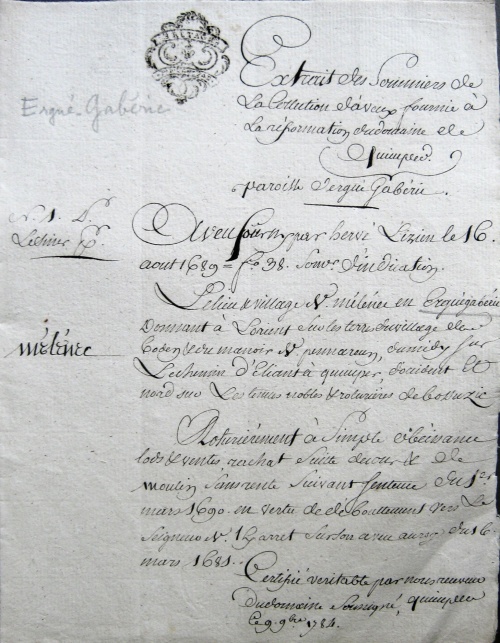 Extrait des Sommiers de
La Collection d'aveux fournie à
La réformation du domaine de
Quimper.
paroisse d'ergué Gabéric.
Ergué-Gabéric
N. 1. 
Aveu fourny par hervé Lizien le 16.
aout 1689 = fo. 38. Somr. d'indication.
Le lieu & village N. mélénec en Ergué gabéric
Donnant à Lorient sur les terres du village de
Coden & du manoir N. pennareun, du midy sur
Le chemin d'Eliant à quimper, d'occident &
nord sur Les terres nobles & roturieres de
mélénec
Roturièrement à Simple obéissance
lods & ventes, rachat Suite de cour & de
moulin Sans rente Suivant Sentence du 1er
mars 1690. en vertu de déboutement vers Le
Seigneur N. sur son aveu du 16
mars 1681.
Certifié véritable par nous receveur
Du domaine Soussigné, quimper
Ce 9. 9bre 1784.